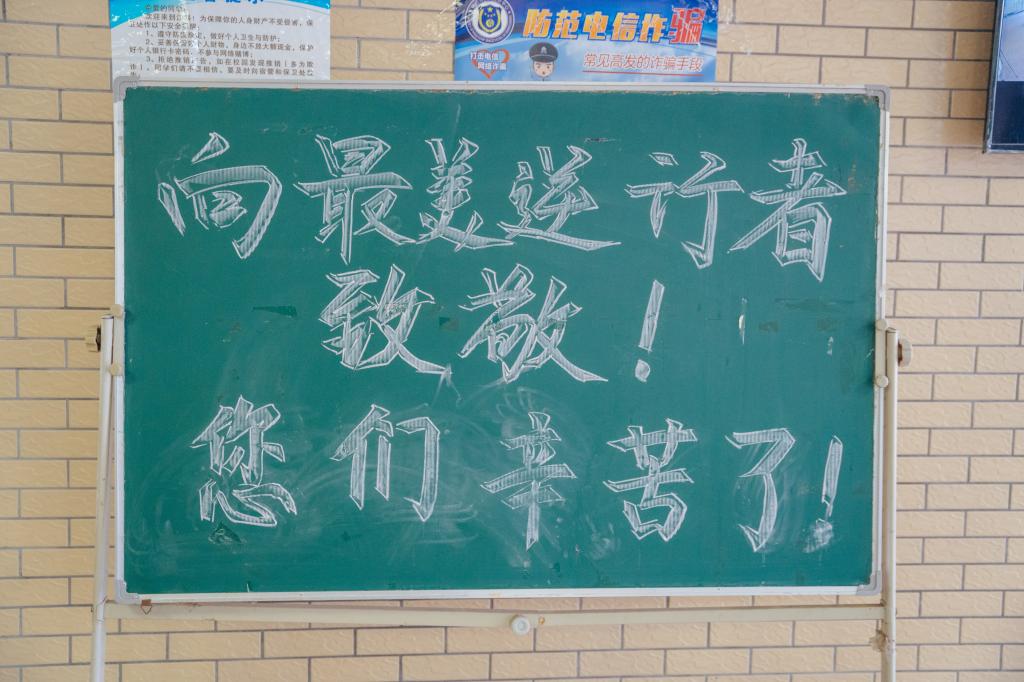 欢迎来到江科! 为保障你的人身财产不受侵害, 保
卫处作以下安全提醒:
1、遵守防疫规定, 做好个人卫生与防护;
2、妥善保管好个人财物, 身边不放大额现金, 保护
好个人银行卡密码, 不参与网络赌博;
3、拒绝推销广告, 如在校园发现推销(多为欺
诈), 同学们请不要相信, 要及时向宿管和保卫处
防范电信诈骗
打击电信
网络诈骗
常见高发的诈骗手段
向最美逆行者
致敬!
您们辛苦了!